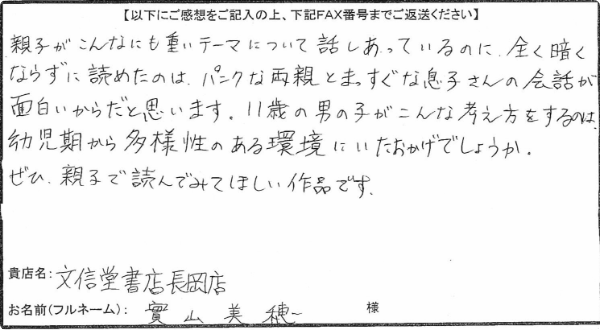 【以下にご感想をご記入の上、下記FAX番号までご返送ください】
親子がこんなにも重いテーマについて話しあっているのに、全く暗く
ならずに読めたのは、パンクな両親とまっすぐな息子さんの会話が
面白いからだと思います。11歳の男の子がこんな考え方をするのは、
幼児期から多様性のある環境にいたおかげでしょうか。
ぜひ、親子で読んでみてほしい作品です。
貴店名：文信堂書店長岡店
お名前（フルネーム）： 實山美穂 様